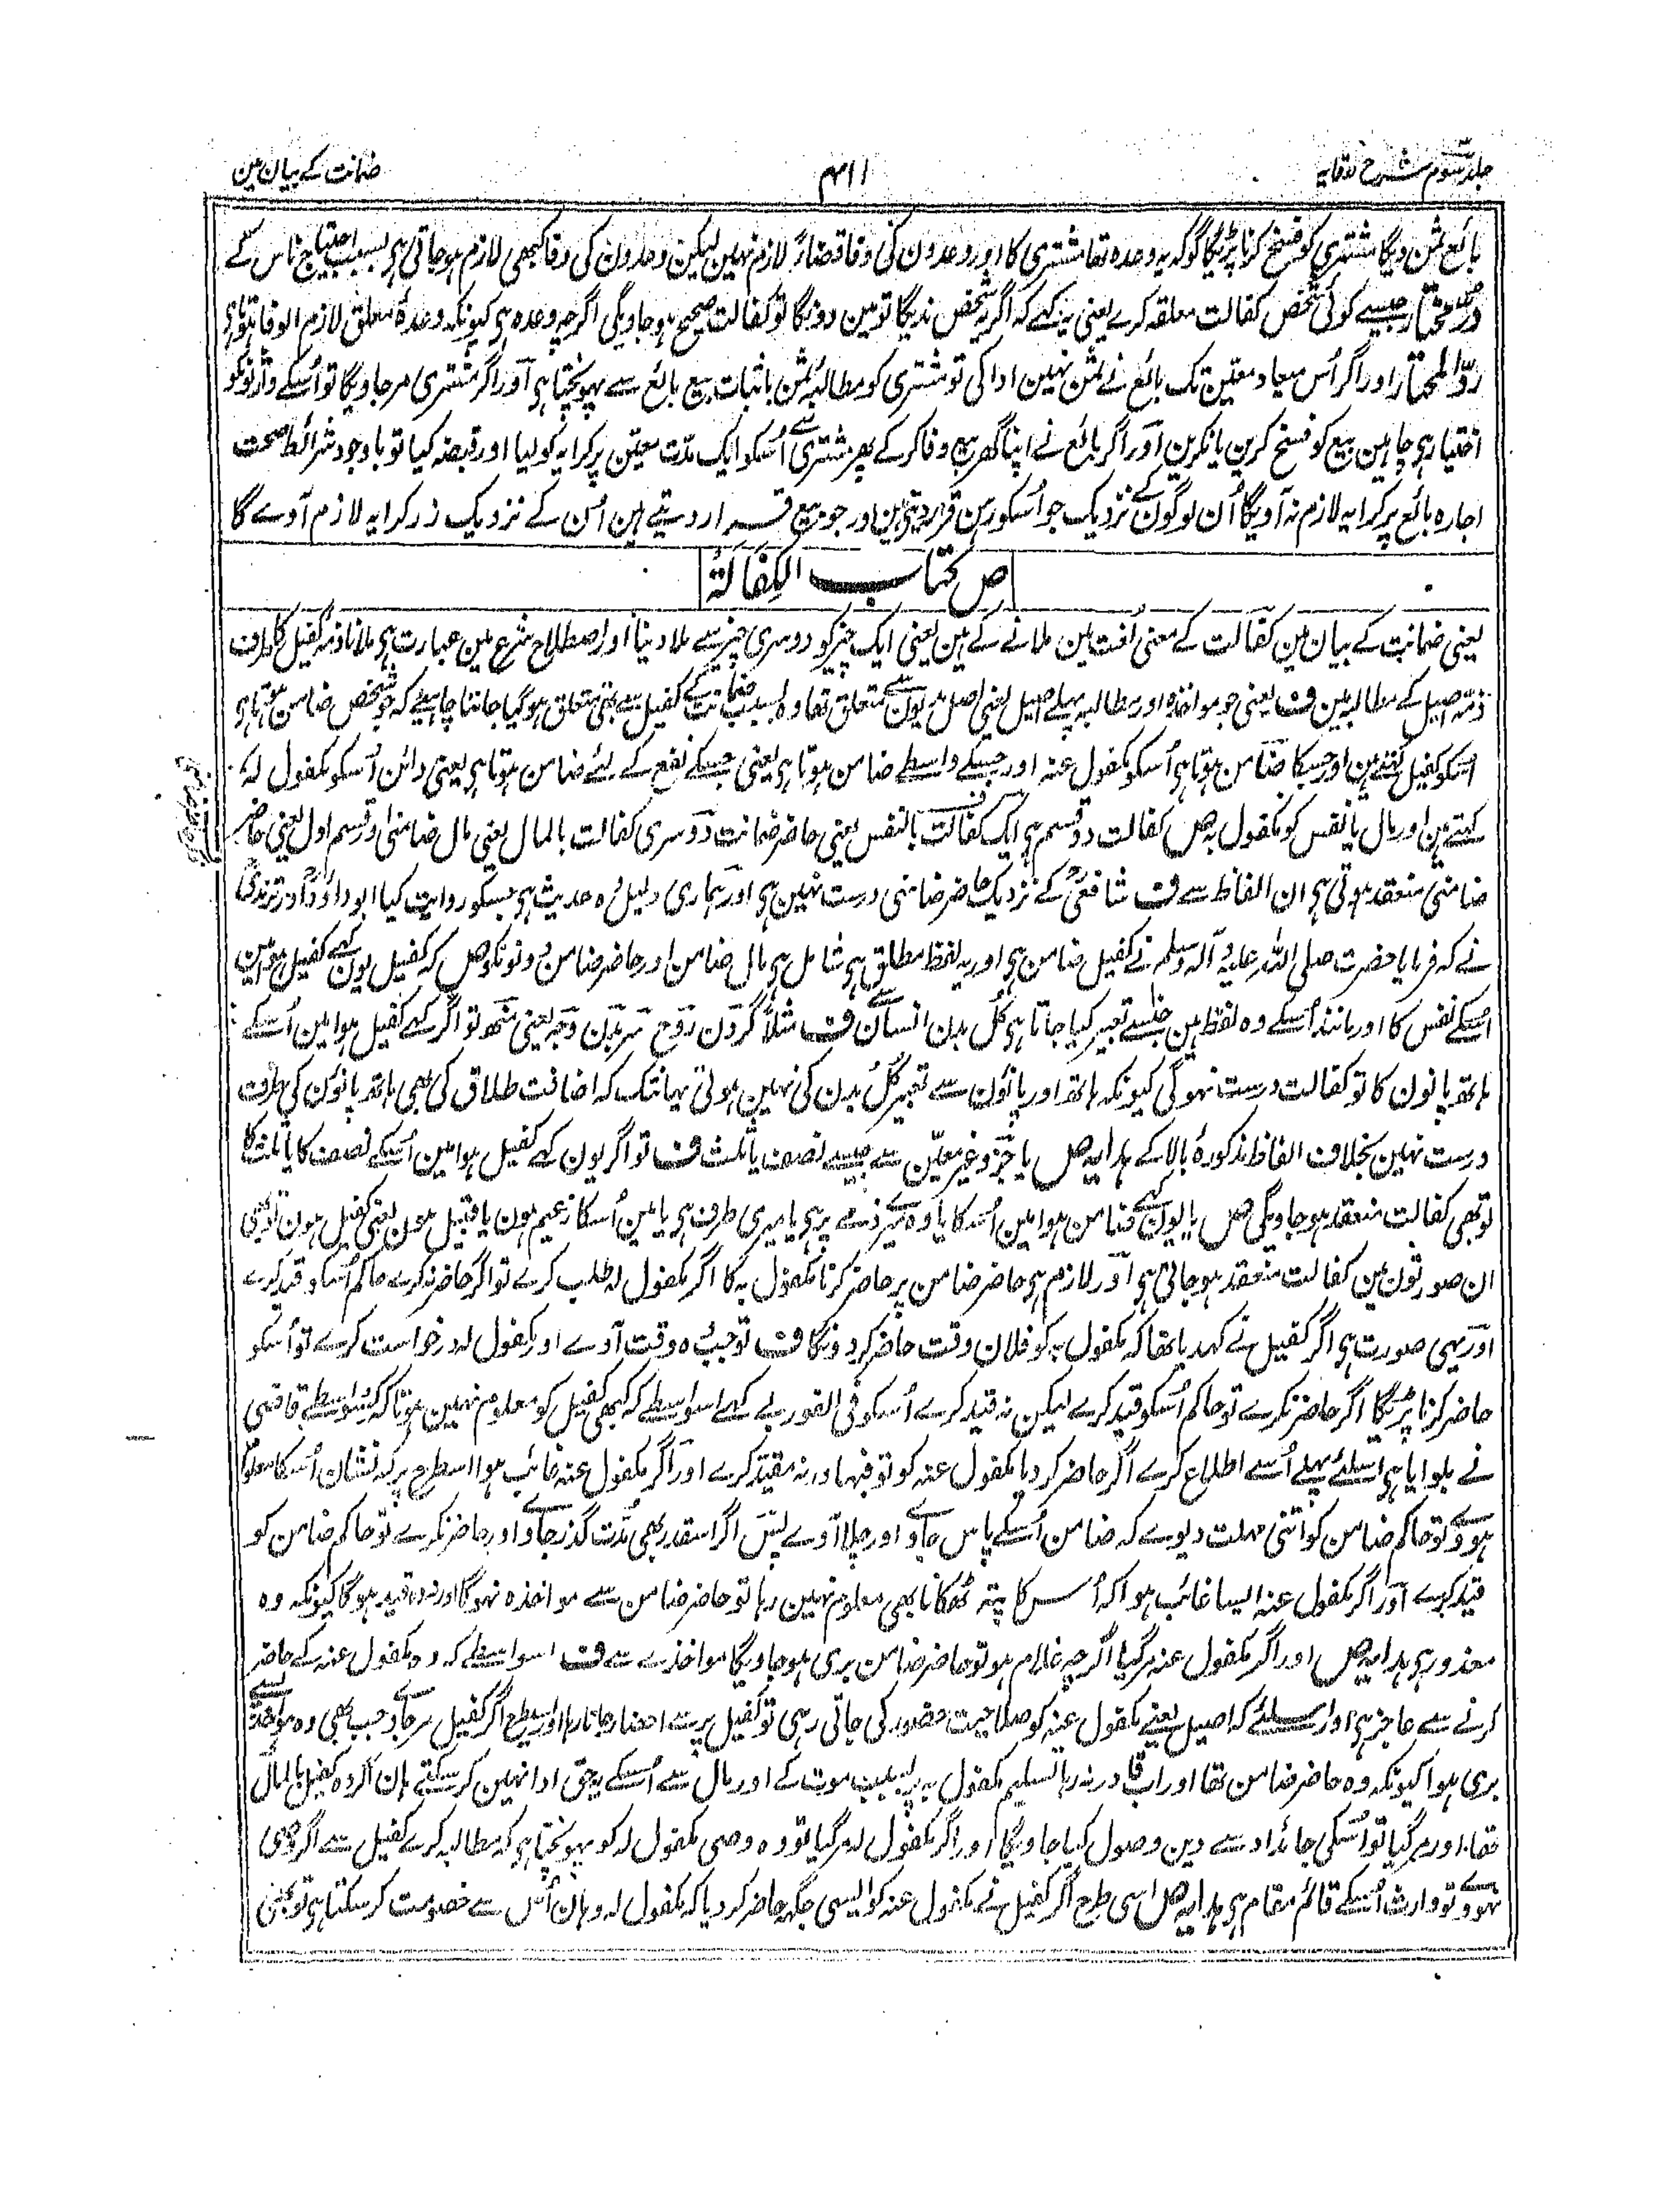 جلد سوم شرح وقایہ
۴۱۱
ضمانت کے بیان مین
بائع ثمن دیگا مشتری کو فسخ کرنا پڑیگا گو کہ یہ وعدہ تھا مشتری کا اور وعدون کی وفا قضاءً لازم نہین لیکن وعدون کی وفا کبھی لازم ہو جاتی ہی بسبب احتیاج ناس کے
درّ مختار جیسے کوئی شخص کفالت معلقہ کرے یعنی یہ کہے کہ اگر یہ شخص ندیگا تو مین دونگا تو کفالت صحیح ہو جاویگی اگرچہ وعدہ ہی کیونکہ وعدۂ معلق لازم الوفا ہوتا ہی
ردّ المحتار اور اگر اُس میعاد معیّن تک بائع نے ثمن نہین ادا کی تو مشتری کو مطالبہ ثمن باثبات بیع بائع سے پہونچتا ہی اور اگر مشتری مر جاویگا تو اُسکے وارثونکو
اختیار ہی چاہین بیع کو فسخ کرین یا نکرین اور اگر بائع نے اپنا گھر بیع وفا کر کے پھر مشتری سے اُسکو ایک مدّت معیّن پر کرایہ کو لیا اور قبضہ کیا تو باوجود شرائط صحت
اجارہ بائع پر کرایہ لازم نہ آویگا اُن لوگون کے نزدیک جو اُسکو رہن قرار دیتے ہین اور جو بیع قرار دیتے ہین اُن کے نزدیک زر کرایہ لازم آوے گا
ص کتاب الکفالۃ
یعنی ضمانت کے بیان مین کفالت کے معنی لغت مین ملانے کے ہین یعنی ایک چیز کو دوسری چیز سے ملا دینا اور اصطلاح شرع مین عبارت ہی ملانا ذمہ کفیل کا طرف
ذمّہ اصیل کے مطالبہ مین ف یعنی جو مواخذہ اور مطالبہ پہلے اصیل یعنی اصل مدیون سے متعلق تھا وہ بسبب ضمانت کے کفیل سے بھی متعلق ہو گیا جاننا چاہیے کہ جو شخص ضامن ہوتا ہی
اسکو کفیل کہتے ہین اور جسکا ضامن ہوتا ہی اُسکو مکفول عنہ اور جسکے واسطے ضامن ہوتا ہی یعنی جسکے نفع کے لئے ضامن ہوتا ہی یعنی دائن اُسکو مکفول لہ
کہتے ہین اور مال یا نفس کو مکفول بہ ص کفالت دو قسم ہی ایک کفالت بالنفس یعنی حاضر ضمانت دوسری کفالت بالمال یعنی مال ضامنی اور قسم اول یعنی حاضر
ضامنی منعقد ہوتی ہی ان الفاظ سے ف شافعیؒ کے نزدیک حاضر ضامنی درست نہین ہی اور ہماری دلیل وہ حدیث ہی جسکو روایت کیا ابوداؤد اور ترمذی
نے کہ فرمایا حضرت صلی اللہ علیہ وآلہ وسلم نے کفیل ضامن ہی اور یہ لفظ مطلق ہی شامل ہی مال ضامن اور حاضر ضامن دونونکو ص کہ کفیل یون کہے کفیل ہوا مین
اُسکے نفس کا اور مانند اُسکے وہ لفظ ہین جنسے تعبیر کیا جاتا ہی کُل بدن انسان سے ف مثلاً گردن روح سر بدن وجہ یعنی منھ تو اگر کہے کفیل ہوا مین اُسکے
ہاتھ پانون کا تو کفالت درست نہوگی کیونکہ ہاتھ اور پانوٴن سے تعبیر کُل بدن کی نہین ہوتی یہانتک کہ اضافت طلاق کی بھی ہاتھ پانوٴن کی طرف
درست نہین بخلاف الفاظ مذکورۂ بالا کے ہدایہ ص یا جزو غیر معیّن سے جیسے نصف یا ثلث ف تو اگر یون کہے کفیل ہوا مین اُسکے نصف کا یا ثلث کا
تو بھی کفالت منعقد ہو جاویگی ص یا یون کہے ضامن ہوا مین اُسکا یا وہ میرے ذمے پر ہی یا میری طرف ہی یا مین اُسکا زعیم ہون یا قبیل ہون یعنی کفیل ہون تو بھی
ان صورتون مین کفالت منعقد ہو جاتی ہی اور لازم ہی حاضر ضامن پر حاضر کرنا مکفول بہ کا اگر مکفول لہ طلب کرے تو اگر حاضر نکرے حاکم اُسکو قید کرے
اور یہی صورت ہی اگر کفیل نے کہدیا تھا کہ مکفول بہ کو فلان وقت حاضر کر دونگا ف تو جب وہ وقت آوے اور مکفول لہ درخواست کرے تو اُسکو
حاضر کرنا پڑیگا اگر حاضر نکرے تو حاکم اُسکو قید کرے لیکن نہ قید کرے اُسکو فی الفور بے کہے اسواسطے کہ کبھی کفیل کو معلوم نہین ہوتا کہ کسواسطے قاضی
نے بلوایا ہی اسلئے پہلے اُسے اطلاع کرے اگر حاضر کر دیا مکفول عنہ کو تو فبہا ورنہ مقیّد کرے اور اگر مکفول عنہ غائب ہوا اسطرح پر کہ نشان اُسکا معلوم
ہووے تو حاکم ضامن کو اتنی مہلت دیوے کہ ضامن اُسکے پاس جاوے اور چلا آوے پس اگر اسقدر بھی مدّت گذر جاوے اور حاضر نکرے تو حاکم ضامن کو
قید کرے اور اگر مکفول عنہ ایسا غائب ہوا کہ اُس کا پتہ ٹھکانا بھی معلوم نہین رہا تو حاضر ضامن سے مواخذہ نہوگا اور نہ وہ قید ہوگا کیونکہ وہ
معذور ہی ہدایہ ص اور اگر مکفول عنہ مر گیا اگرچہ غلام ہو تو حاضر ضامن بری ہو جاویگا مواخذے سے ف اسواسطے کہ وہ مکفول عنہ کے حاضر
کرنے سے عاجز ہی اور اسلئے کہ اصیل یعنے مکفول عنہ کو صلاحیت حضور کی جاتی رہی تو کفیل پر سے احضار جاتا رہا اور اسیطرح اگر کفیل مر جاوے جب بھی وہ مواخذے سے
بری ہوا کیونکہ وہ حاضر ضامن تھا اور اب قادر نہ رہا تسلیم مکفول بہ پر بسبب موت کے اور مال سے اُسکے یہ حق ادا نہین کر سکتے ہان اگر وہ کفیل بالمال
تھا اور مر گیا تو اُسکی جائداد سے دین وصول کیا جاویگا اور اگر مکفول لہ مر گیا تو وہ وصی مکفول لہ کو پہونچتا ہی کہ مطالبہ کرے کفیل سے اگر وصی
نہووے تو وارث اُسکے قائم مقام ہی ہدایہ ص اسی طرح اگر کفیل نے مکفول عنہ کو ایسی جگہ حاضر کر دیا کہ مکفول لہ وہان اُس سے خصومت کر سکتا ہی تو بھی